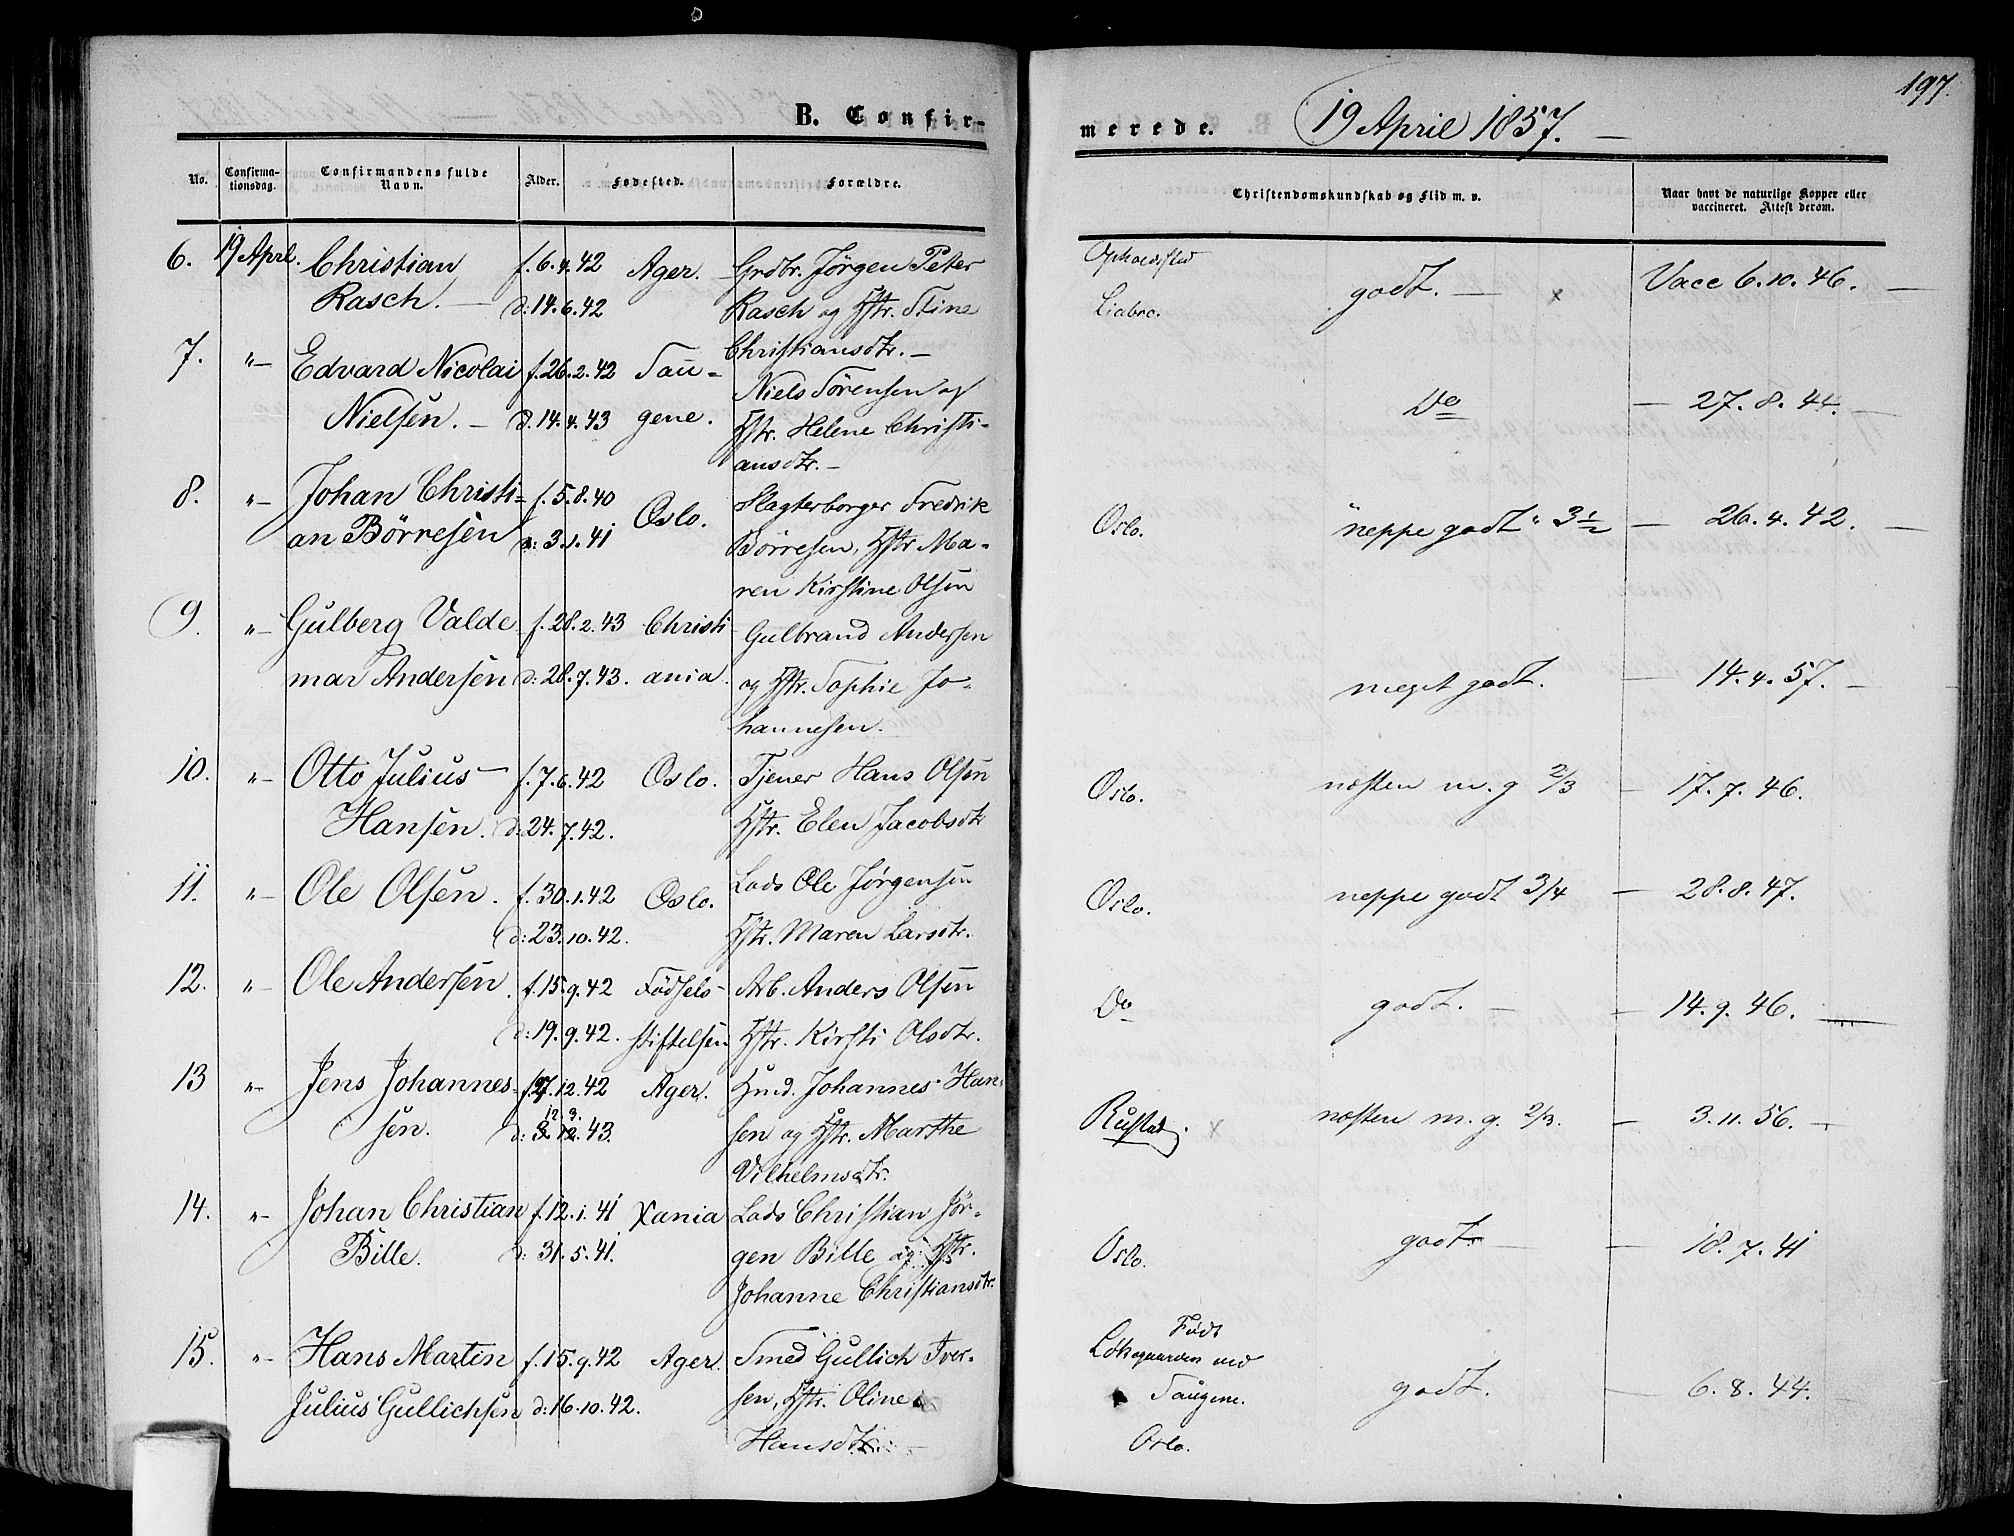 197.
B. Confir-
merede. 19 April 1857. —
No.
Confirma-
tionsdag.
Confirmandens fulde
Navn.
Alder.
Fødested.
Forældre.
Christendomskundskab og Flid m. v.
Naar havt de naturlige Kopper eller
vaccineret. Attest derom.
6. 19 Aprl. Christian f. 6.4.42 Ager. Grdbr. Jørgen Peter
Rasch. — d: 14.6.42 Rasch og Hstr. Stine
Christiansdtr. —
Opholdssted
Liabro. godt. — x Vacc 6.10.46. —
7. "— Edvard Nicolai f. 26.2.42 Sau- Niels Sørensen og
Nielsen. — d. 14.4.43 gene. Hstr. Helene Christi-
ansdtr. —
Do — 27.8.44. —
8. "— Johan Christi- f. 5.8.40 Oslo. Slagterborger Fredrik
an Børresen d: 3.1.41 Børresen, Hstr Ma-
ren Kirstine Olsen
Oslo. "neppe godt" 3½ — 26.4.42. —
9. "— Gulberg Valde f. 28.2.43 Christi Gulbrand Andersen
mar Andersen d: 28.7.43. ania. og Hstr. Sophie Jo-
hannesen.
meget godt. — 14.4.57. —
10. "— Otto Julius f. 7.6.42 Oslo. Tjener Hans Olsen
Hansen. d: 24.7.42. Hstr. Elen Jacobsdtr
Oslo. næsten m. g 2/3 — 17.7.46.
11. "— Ole Olsen. f. 30.1.42 Oslo. Lods Ole Jørgensen
d: 23.10.42. Hstr. Maren Larsdtr.
Oslo. neppe godt 3/4 — 28.8.47.
12. "— Ole Andersen. f. 15.9.42 Födsels- Arb. Anders Olsen
d: 19.9.42. stiftelsen Hstr. Kirsti Olsdtr.
Do godt. — — 14.9.46. —
13 "— Jens Johannes- f. 27.12.42 Ager. Hmd. Johannes Han-
sen. d: 12.3.43. sen og Hstr. Marthe
Vilhelmsdtr.
Rustad. x næsten m. g. 2/3. — 3.11.56. —
14. "— Johan Christian f. 12.1.41 Xania Lods Christian Jør-
Bille. d: 31.5.41. gen Bille og Hstr.
Johanne Christiansdtr.
Oslo. godt. — — 18.7.41
15. "— Hans Martin f. 15.9.42 Ager. Smed Gullich Iver-
Julius Gullichsen d: 16.10.42. sen, Hstr. Oline
Hansdtr. —
Født
ved
Saugene.
Oslo. godt. — 6.8.44.